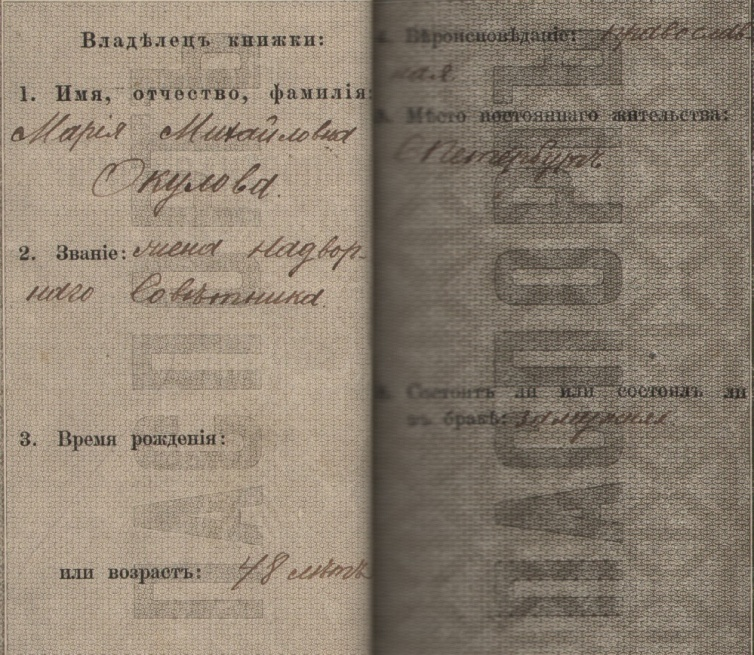 Владѣлецъ книжки:
1. Имя, отчество, фамилія:
Марія Михайловна
Окулова.
2. Званіе: жена надвор-
наго Совѣтника.
3. Время рожденія:
или возрастъ: 48 лѣтъ
4. Вѣроисповѣданіе: православ-
ная
5. Мѣсто постояннаго жительства:
С Петербургъ
6. Состоитъ ли или состоялъ ли
въ бракѣ: замужняя
ПАСПОРТ
ПАСПОРТ